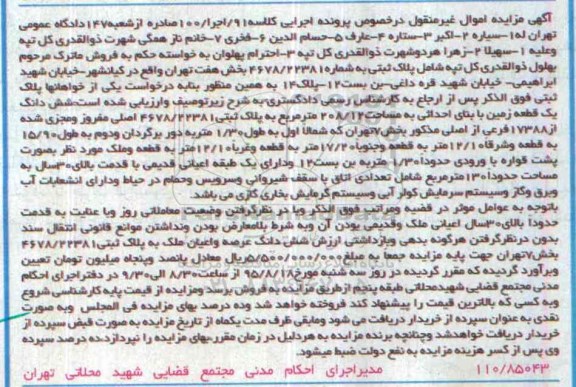 آگهی مزایده اموال غیرمنقول درخصوص پرونده اجرایی کلاسه۹۱/اجرا/۱۰۰صادره ازشعبه۱۴۷دادگاه عمومی
تهران له۱-سیاره ۲-اکبر ۳-ستاره ۴-عارف ۵-حسام الدین ۶-فخری ۷-خانم ناز همگی شهرت ذوالقدری کل تپه
وعلیه ۱-سهیلا ۲-زهرا هردوشهرت ذوالقدری کل تپه ۳-احترام پهلوان به خواسته حکم به فروش ماترک مرحوم
بهلول ذوالقدری کل تپه شامل پلاک ثبتی به شماره۴۶۷۸/۲۲۳۸۱ بخش هفت تهران واقع در کیانشهر-خیابان شهید
ابراهیمی- خیابان شهید قره داغی-بن بست۱۲-پلاک۱۴ به همین منظور بنابه درخواست یکی از خواهانها پلاک
ثبتی فوق الذکر پس از ارجاع به کارشناس رسمی دادگستری به شرح زیرتوصیف وارزیابی شده است:شش دانگ
یک قطعه زمین با بنای احداثی به مساحت۲۰۸/۱۲ مترمربع به پلاک ثبتی۴۶۷۸/۲۲۳۸۱ اصلی مفروز ومجزی شده
از۱۷۳۸۸فرعی از اصلی مذکور بخش۷تهران که شمالا اول به طول۱/۳۰ متربه دور برگردان ودوم به طول۱۵/۹۰
به قطعه وشرقا۱۲/۱۰متر به قطعه وجنوبا۱۷/۲۰متر به قطعه وغربا۱۲/۱۰متر به قطعه وملک مورد نظر بصورت
پشت قواره با ورودی حدودا۱/۳۰ متربه بن بست۱۲ ودارای یک طبقه اعیانی قدیمی با قدمت بالای۳۰سال به
مساحت حدودا۱۳۰مترمربع شامل تعدادی اتاق با سقف شیروانی وسرویس وحمام در حیاط ودارای انشعابات آب
وبرق وگاز وسیستم سرمایش کولر آبی وسیستم گرمایش بخاری گازی می باشد.
باتوجه به عوامل موثر در قضیه ومراتب فوق الذکر وبا در نظرگرفتن وضعیت معاملاتی روز وبا عنایت به قدمت
حدودا بالای۳۰سال اعیانی ملک وقدیمی بودن آن وبه شرط بلامعارض بودن ونداشتن موانع قانونی انتقال سند
بدون درنظرگرفتن هرگونه بدهی وبازداشتی ارزش شش دانگ عرصه واعیان ملک به پلاک ثبتی۴۶۷۸/۲۲۳۸۱
بخش۷تهران جهت پایه مزایده جمعا به مبلغ۵/۵۰۰/۰۰۰/۰۰۰ریال معادل پانصد وپنجاه میلیون تومان تعیین
وبرآورد گردیده که مقرر گردیده در روز سه شنبه مورخ۹۵/۸/۱۸ از ساعت۸/۳۰ الی۹/۳۰ در دفتراجرای احکام
مدنی مجتمع قضایی شهیدمحلاتی طبقه پنجم ازطریق مزایده به فروش برسد ومزایده از قیمت پایه کارشناسی شروع
وبه کسی که بالاترین قیمت را پیشنهاد کند فروخته خواهد شد وده درصد بهای مزایده فی المجلس وبه صورت
نقدی به عنوان سپرده از خریدار دریافت می شود ومابقی ظرف مدت یکماه از تاریخ مزایده به صورت قبض سپرده از
خریدار دریافت خواهدشد وچنانچه برنده مزایده به هردلیل در زمان مقرربهای مزایده را نپردازد،ده درصد سپرده
وی پس از کسر هزینه مزایده به نفع دولت ضبط میشود.
۱۱۰/۸۵۰۴۳ مدیراجرای احکام مدنی مجتمع قضایی شهید محلاتی تهران